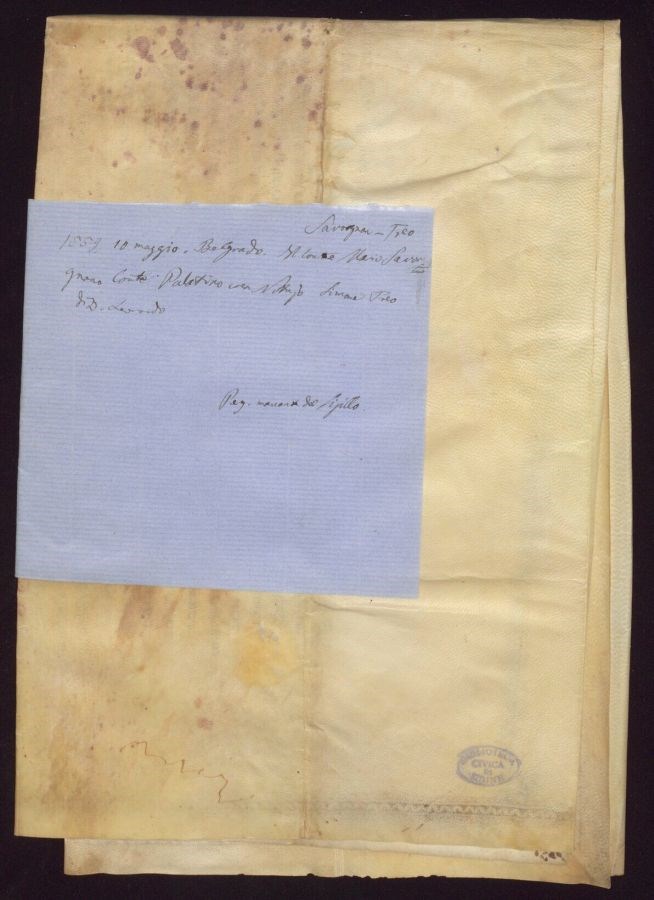 Savorgnan - Treo
1559 10 maggio. Belgrado. Il Conte Mario Savor=
gnano Conte Palatino crea Notajo Simone Treo
di D. Leonardo
Perg. mancante del Sigillo.
BIBLIOTECA
CIVICA
DI
UDINE